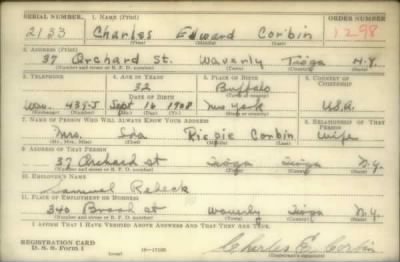 SERIAL NUMBER 1. NAME (Print) ORDER NUMBER
2133 Charles Edward Corbin 1298
(First) (Middle) (Last)
2. ADDRESS (Print)
37 Orchard St. Waverly Tioga N.Y.
(Number and street or R. F. D. number) (Town) (County) (State)
3. TELEPHONE 4. AGE IN YEARS 5. PLACE OF BIRTH 6. COUNTRY OF CITIZENSHIP
32 Buffalo
DATE OF BIRTH (Town or county)
Wav. 439-J Sept 16 1908 New York U.S.A.
(Exchange) (Number) (Mo.) (Day) (Yr.) (State or country)
7. NAME OF PERSON WHO WILL ALWAYS KNOW YOUR ADDRESS 8. RELATIONSHIP OF THAT PERSON
Mrs. Ida Corbin Wife
(Mr., Mrs., Miss) (First) (Middle) (Last)
9. ADDRESS OF THAT PERSON
37 Orchard St Tioga Tioga N.Y.
(Number and street or R. F. D. number) (Town) (County) (State)
10. EMPLOYER'S NAME
Samuel Rebeck
11. PLACE OF EMPLOYMENT OR BUSINESS
340 Broad St Waverly Tioga N.Y.
(Number and street or R. F. D. number) (Town) (County) (State)
I AFFIRM THAT I HAVE VERIFIED ABOVE ANSWERS AND THAT THEY ARE TRUE.
REGISTRATION CARD
D. S. S. Form 1 (over) Charles E. Corbin
(Registrant's signature)